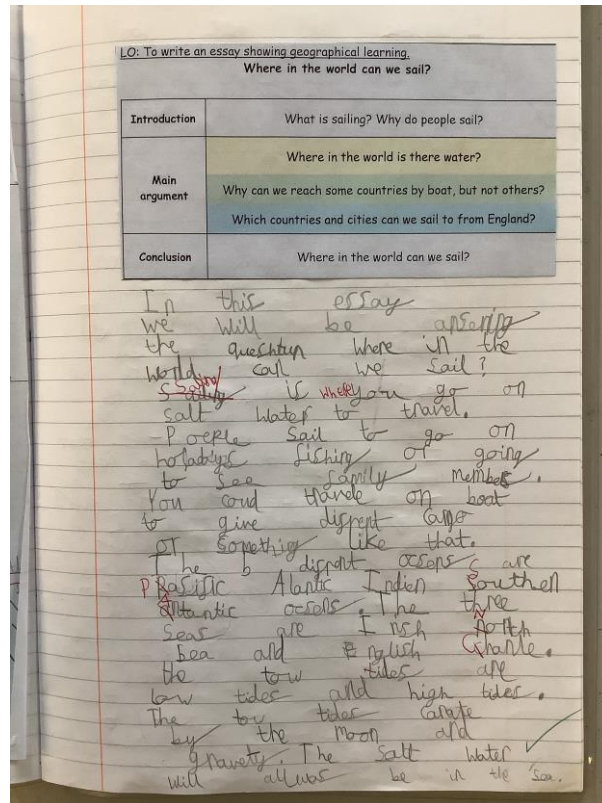 LO: To write an essay showing geographical learning.
Where in the world can we sail?
Introduction
What is sailing? Why do people sail?
Main argument
Where in the world is there water?
Why can we reach some countries by boat, but not others?
Which countries and cities can we sail to from England?
Conclusion
Where in the world can we sail?
In this essay
we will be ansering
the queshtun where in the
world can we sail?
Sailing is where you go on
salt water to travel.
Poeple sail to go on
holadays fishing or going
to see family members.
You coud travele on boat
to give diffrent cargo
or something like that.
The 5 diffrent ocsons are
Pasific Alantic Indien Southen
Antantic ocsons. The three
Seas are Irish North
Sea and English Chanle.
the tow tides are
low tides and high tides.
The tow tides carate
by the moon and
gravety. The salt water
will allwas be in the sea.